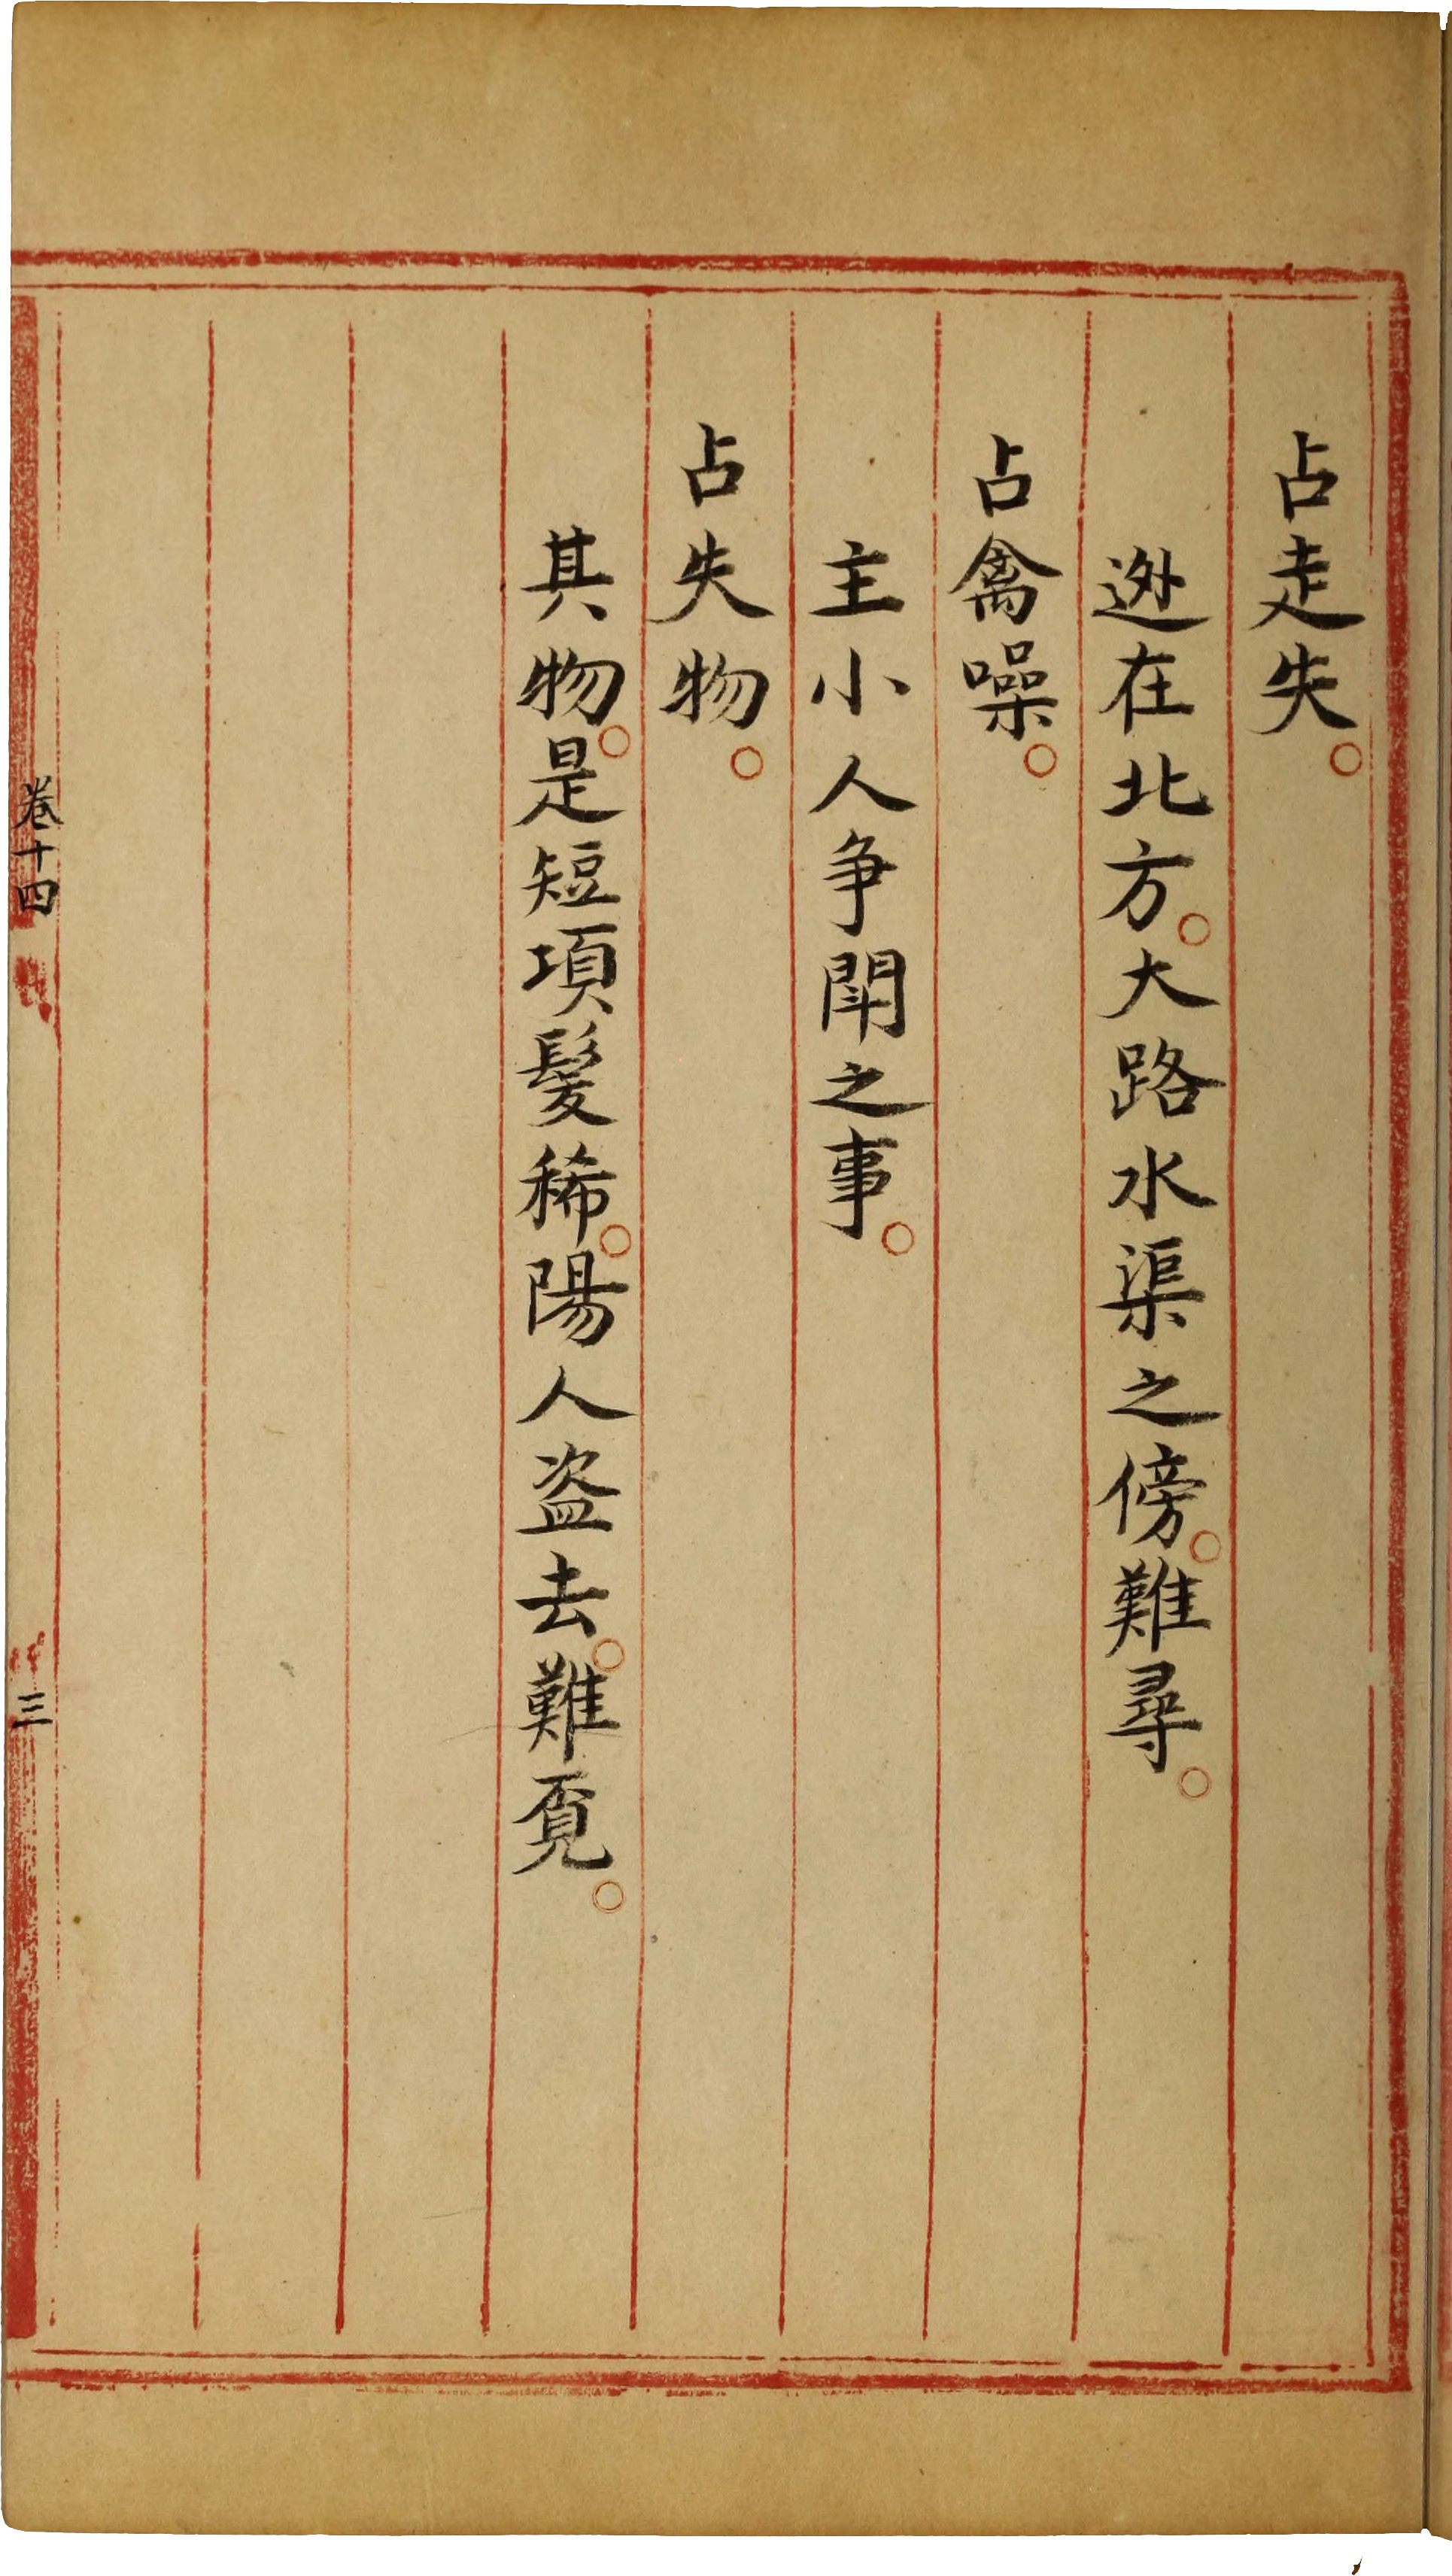 占走失。
迯在北方。大路水渠之傍。難尋。
占禽噪。
主小人争閗之事。
占失物。
其物。是短項髮稀。陽人盗去。難覔。
卷十四
三